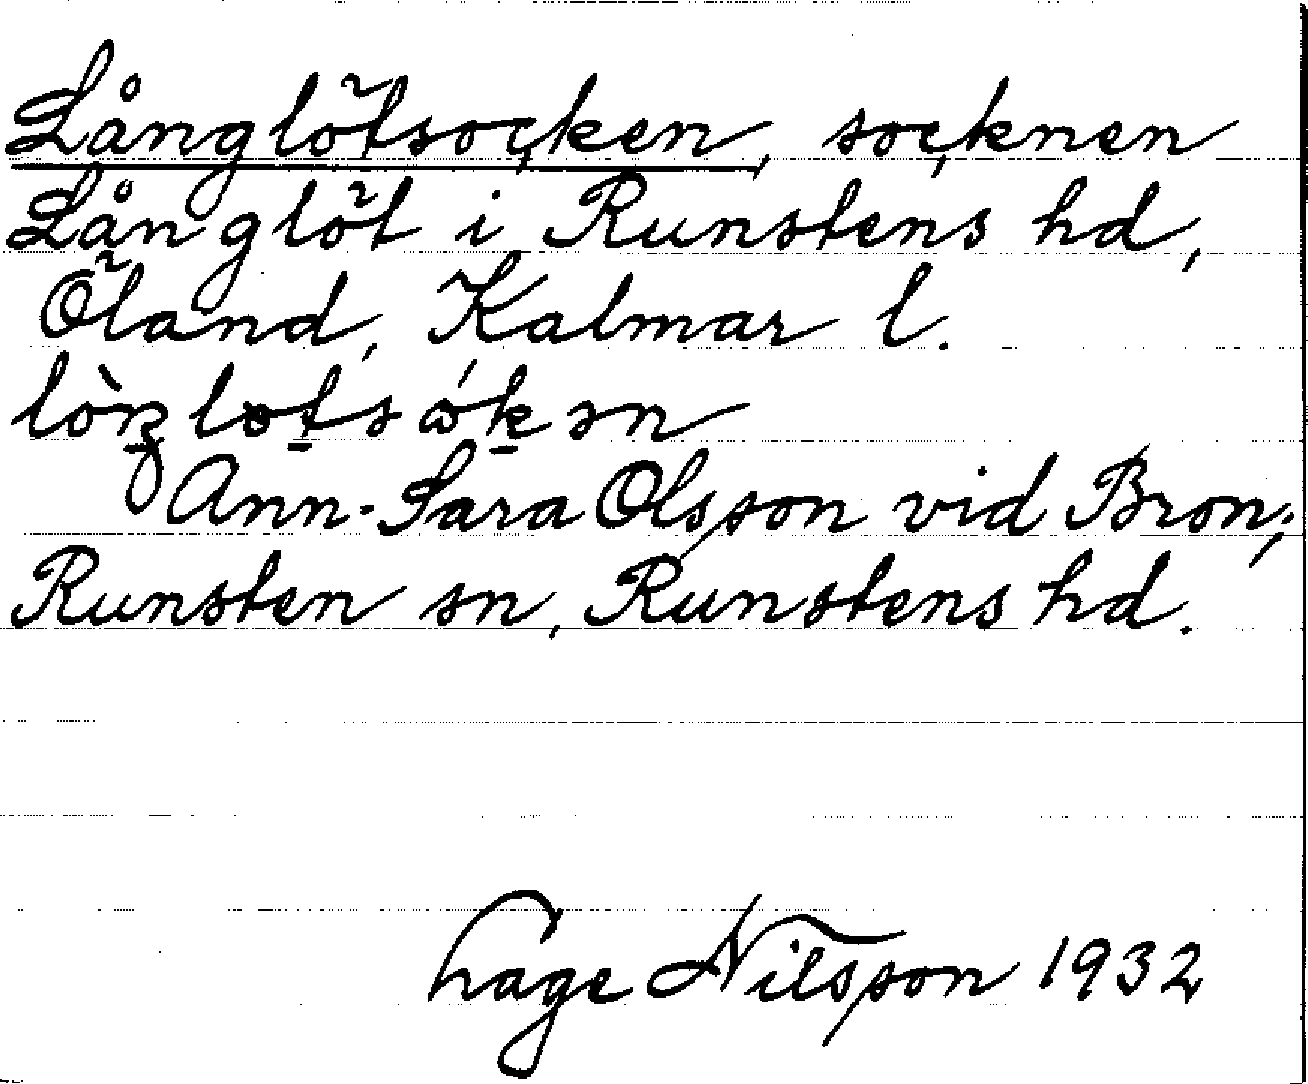 Långlötsocken, socknen
Långlöt i Runstens hd,
Öland, Kalmar l.
Ann-Sara Olsson vid Bron,
Runsten sn, Runstens hd.
Hage Nilsson 1932